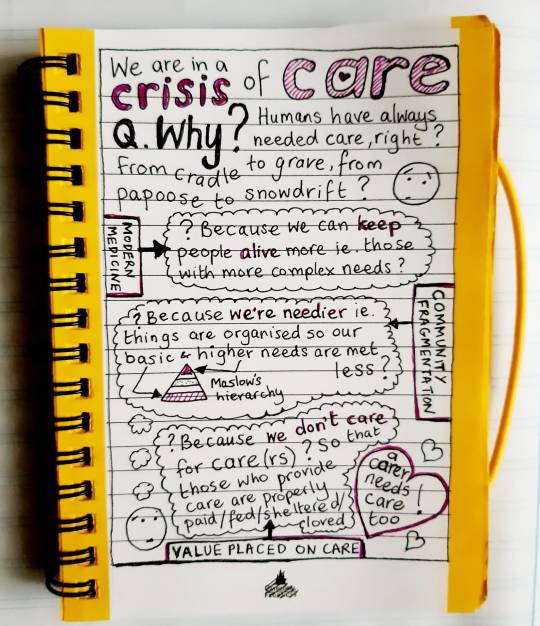 We are in a
crisis of care
Q. Why? Humans have always
needed care, right?
From cradle to grave, from
papoose to snowdrift?
MODERN
MEDICINE
? Because we can keep
people alive more ie. those
with more complex needs?
COMMUNITY
FRAGMENTATION
? Because we're needier ie.
things are organised so our
basic & higher needs are met
less?
Maslow's
hierarchy
? Because we don't care
for care(rs)? So that
those who provide
care are properly
paid/fed/sheltered/
loved
a
carer
needs
care
too!
VALUE PLACED ON CARE